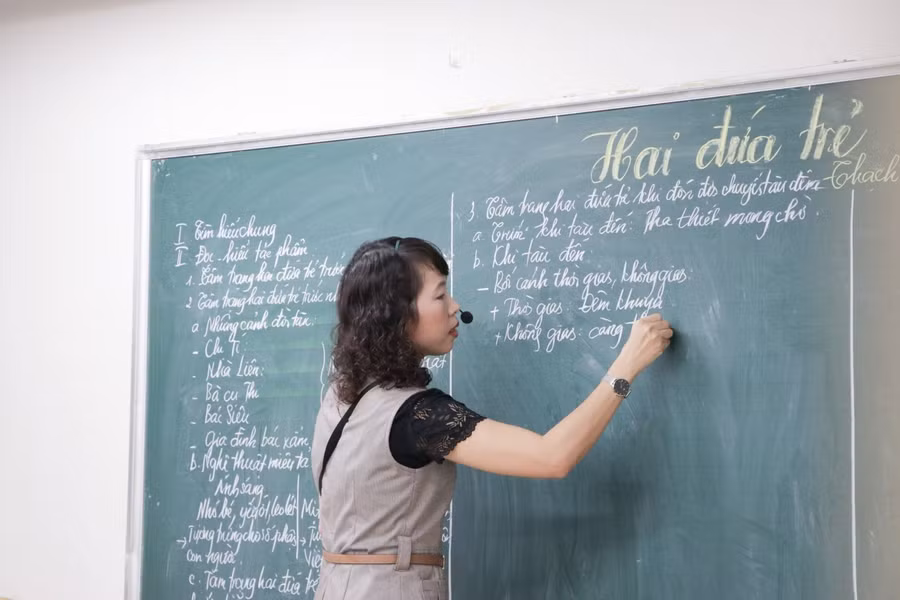 Hai đứa trẻ
Thạch
I Tìm hiểu chung
II Đọc - hiểu tác phẩm
1. Tâm trạng hai đứa trẻ trước
2. Tâm trạng hai đứa trẻ trước
a. Những cảnh đời tàn
- Chị Tí
- Nhà Liên:
- Bà cụ Thi
- Bác Siêu
- Gia đình bác xẩm
b. Nghệ thuật miêu tả
Ánh sáng
Nhỏ bé, yếu ớt, leo lét
→ Tượng trưng cho số phận
con người
c. Tâm trạng hai đứa trẻ
3. Tâm trạng hai đứa trẻ khi đón đợi chuyến tàu đêm
a. Trước khi tàu đến: Tha thiết mong chờ.
b. Khi tàu đến
- Bối cảnh thời gian, không gian
+ Thời gian: Đêm khuya
+ Không gian: càng